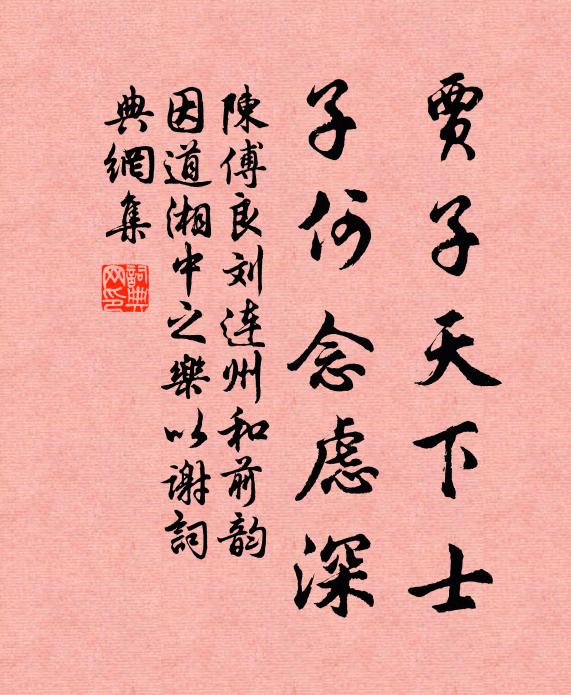 賈子天下士
子何念慮深
陳傅良刘連州和前韵
因道湘中之樂以谢詞
典網集
詞典
网印